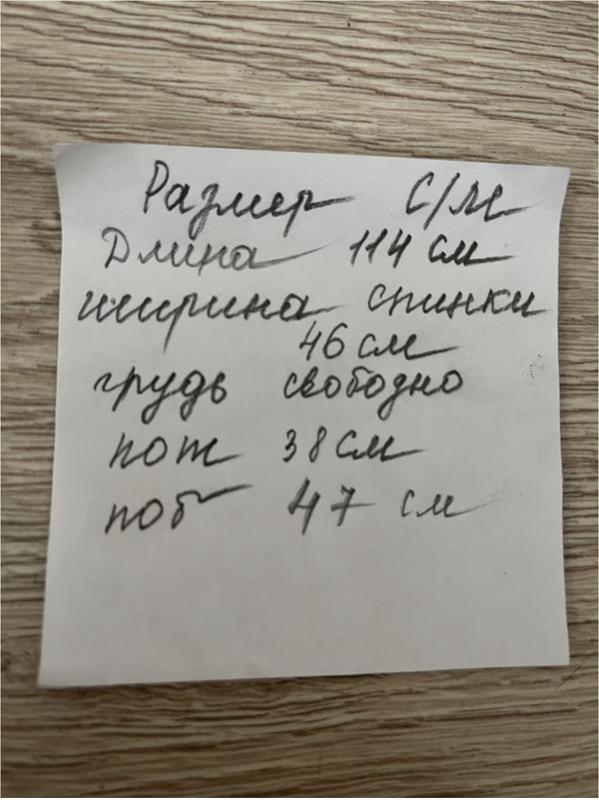 Размер С/М
Длина 114 см
ширина спинки
46 см
грудь свободно
пот 38 см
поб 47 см